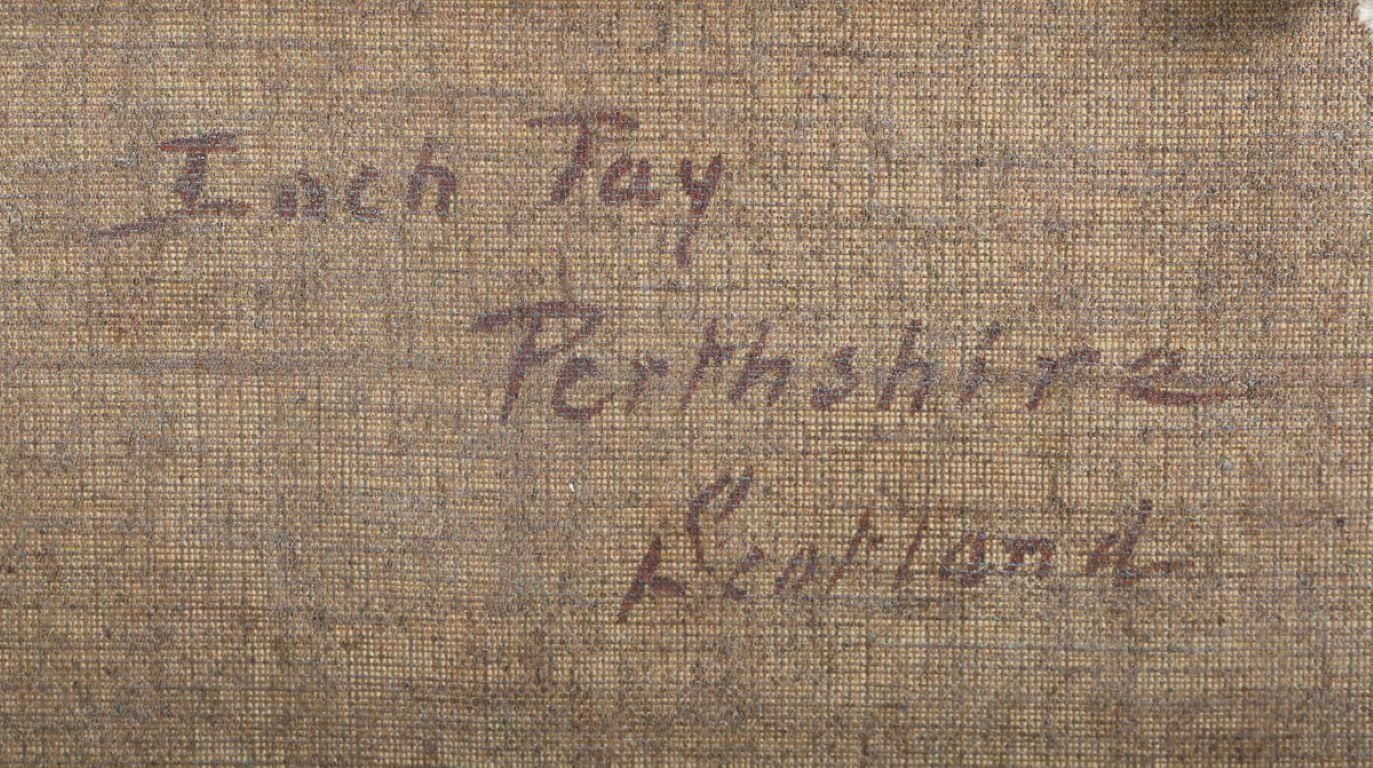 Inch Tay
Perthshire
Scotland